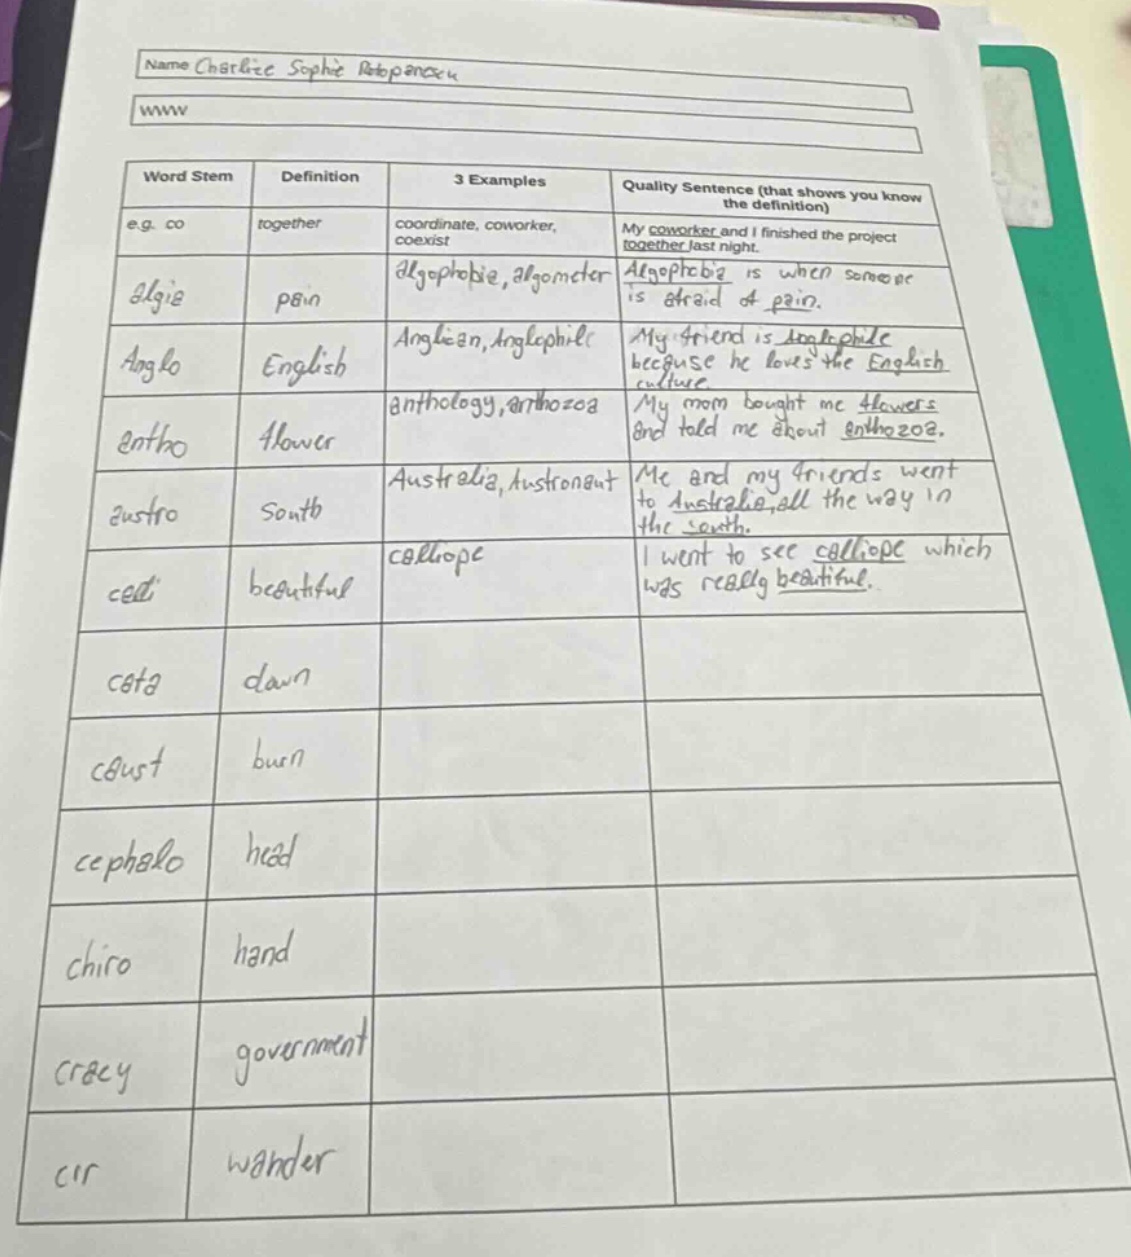 Name Charlize Sophie
WWW
Word Stem Definition 3 Examples Quality Sentence (that shows you know
the definition)
e.g. co together coordinate, coworker,
coexist
My coworker and I finished the project
together last night.
algia pain algophobia, algometer
Algophobia is when someone
is afraid of pain.
Anglo English Anglican, Anglophile
My friend is Anglophile
because he loves the English
culture.
antho flower anthology, anthozoa
My mom bought me flowers
and told me about anthozoa.
austro south Australia, Austronaut
Me and my friends went
to Australia, all the way in
the south.
calli beautiful calliope
I went to see calliope which
was really beautiful.
cata down
caust burn
cephalo head
chiro hand
cracy government
cir wander